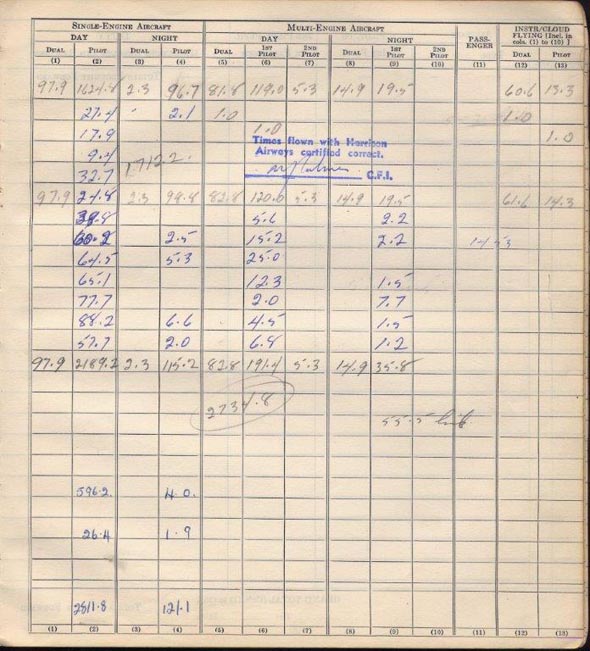 SINGLE-ENGINE AIRCRAFT MULTI-ENGINE AIRCRAFT PASS-ENGER INSTR/CLOUD FLYING [Incl. in cols. (1) to (10) ]
DAY NIGHT DAY NIGHT
DUAL PILOT DUAL PILOT DUAL 1ST PILOT 2ND PILOT DUAL 1ST PILOT 2ND PILOT DUAL PILOT
(1) (2) (3) (4) (5) (6) (7) (8) (9) (10) (11) (12) (13)
97.9 1624.8 2.3 96.7 81.8 119.0 5.3 14.9 19.5 60.6 13.3
27.4 2.1 1.0 1.0
17.9 1.0 1.0
Times flown with Harrison
9.4 1712.2. Airways certified correct.
32.7 C.F.I.
97.9 24.8 2.3 98.8 82.8 120.0 5.3 14.9 19.5 61.6 14.3
38.8 5.6 2.2
60.2 2.5 15.2 2.2
64.5 5.3 25.0
65.1 12.3 1.5
77.7 2.0 7.7
88.2 6.6 4.5 1.5
57.7 2.0 6.8 1.2
97.9 2189.2 2.3 115.2 82.8 191.4 5.3 14.9 35.8
2734.8
55.5
596.2. 4.0.
26.4 1.9
2811.8 121.1
(1) (2) (3) (4) (5) (6) (7) (8) (9) (10) (11) (12) (13)